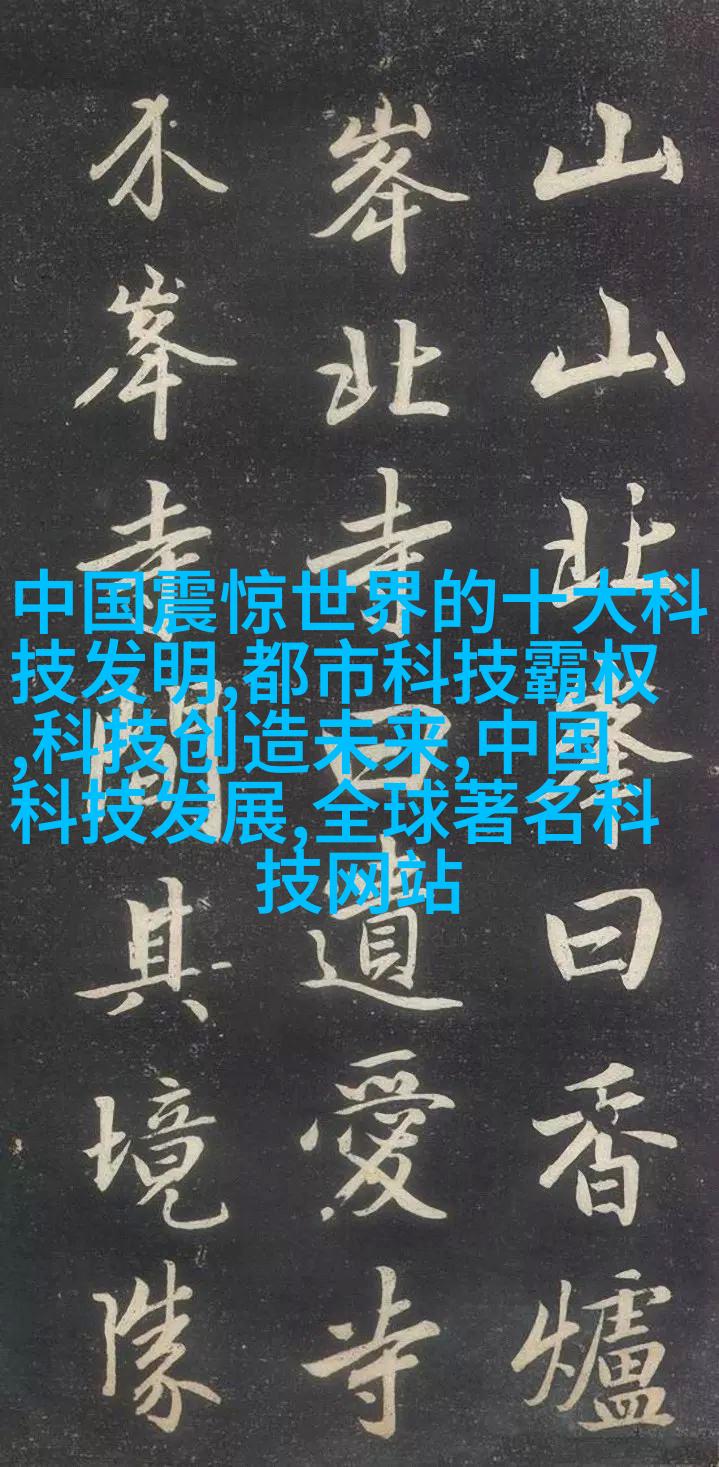 山山北峯曰香爐
峯北寺曰遺愛寺
介峯寺間其境勝
中国震惊世界的十大科
技发明,都市科技霸权
,科技创造未来,中国
科技发展,全球著名科
技网站